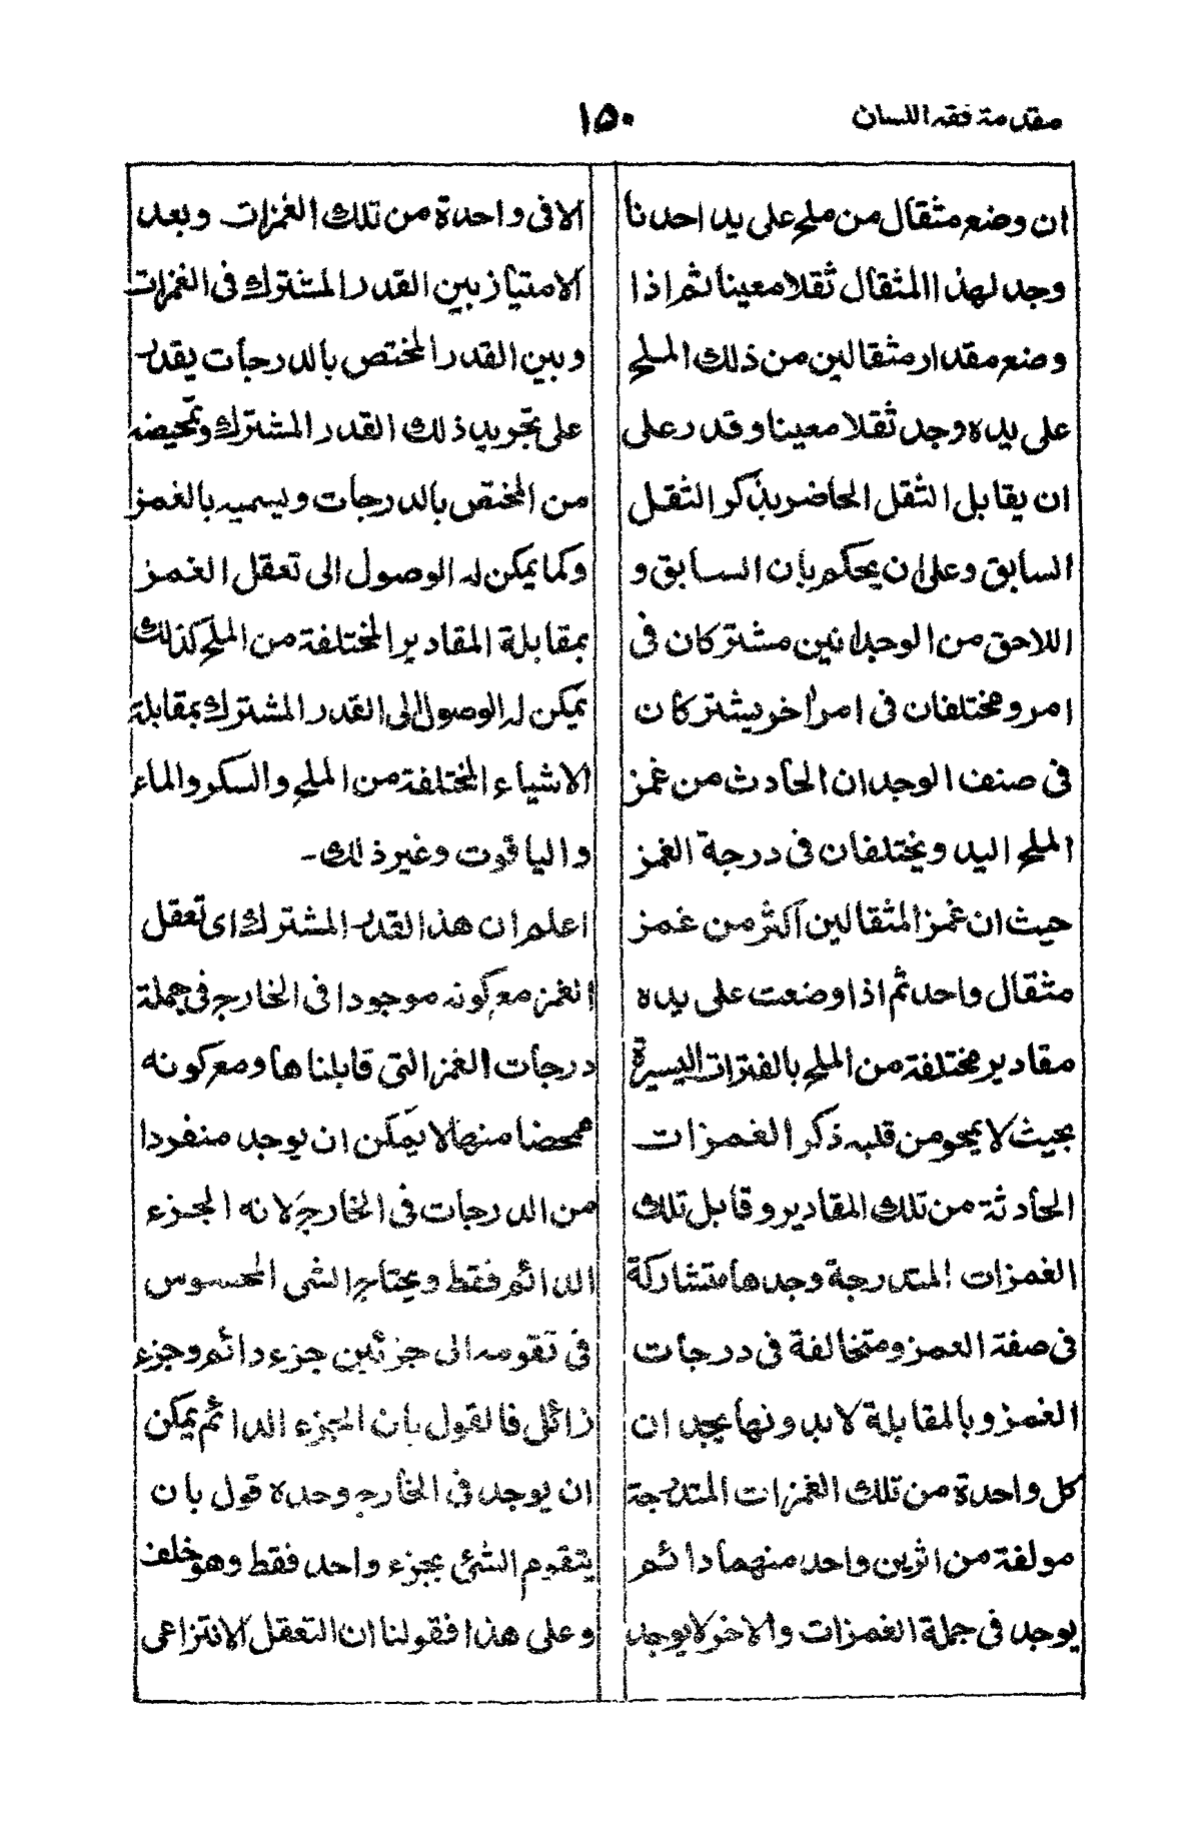 مقدمة فقه اللسان
١٥٠
ان وضع مثقال من ملح على يد احدنا
وجد لهذا المثقال ثقلا معينا ثم اذا
وضع مقدار مثقالين من ذلك الملح
على يده وجد ثقلا معينا وقدر على
ان يقابل الثقل الحاضر بذكر الثقل
السابق وعلى ان يحكم بان السابق و
اللاحق من الوجدانين مشتركان فى
امر ومختلفان فى امر أخر يشتركان
فى صنف الوجدان الحادث من غمز
الملح اليد ويختلفان فى درجة الغمز
حيث ان غمز المثقالين اكثر من غمز
مثقال واحد ثم اذا وضعت على يده
مقادير مختلفة من الملح بالفترات اليسيرة
بحيث لا يمحو من قلبه ذكر الغمزات
الحادثة من تلك المقادير وقابل تلك
الغمزات المتدرجة وجدها متشاركة
فى صفة الغمز ومتخالفة فى درجات
الغمز وبالمقابلة لا بدونها يجد ان
كل واحدة من تلك الغمزات المتدرجة
مولفة من اثرين واحد منهما دائم
يوجد فى جملة الغمزات والاخر لا يوجد
الا فى واحدة من تلك الغمزات وبعد
الامتياز بين القدر المشترك فى الغمزات
وبين القدر المختص بالدرجات يقدر
على تجريد ذلك القدر المشترك وتمحيضه
من المختص بالدرجات ويسميه بالغمز
وكما يمكن له الوصول الى تعقل الغمز
بمقابلة المقادير المختلفة من الملح كذلك
يمكن له الوصول الى القدر المشترك بمقابلة
الاشياء المختلفة من الملح والسكر والماء
والياقوت وغير ذلك-
اعلم ان هذا القدر المشترك اى تعقل
الغمز مع كونه موجودا فى الخارج فى جملة
درجات الغمز التى قابلناها ومع كونه
ممحضا منها لا يمكن ان يوجد منفردا
من الدرجات فى الخارج لانه الجزء
الدائم فقط ويحتاج الشى المحسوس
فى تقومه الى جزئين جزء دائم وجزء
زائل فالقول بان الجزء الدائم يمكن
ان يوجد فى الخارج وحده قول بان
يتقوم الشئ بجزء واحد فقط وهو خلف
وعلى هذا فقولنا ان التعقل الانتزاعى